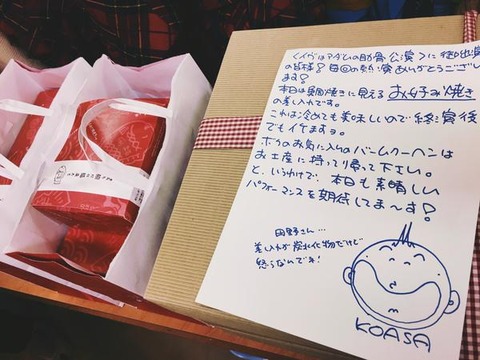 〈イヴはアダムの助骨公演〉に御出演
の皆様！毎回の熱演ありがとうござい
ます！
本日は鯛焼きに見えるお好み焼き
の差し入れです。
これは冷めても美味しいので終演後
でもイケますョ。
ボクのお気に入りのバームクーヘンは
お土産に持って帰って下さい。
と、いうわけで、本日も素晴しい
パフォーマンスを期待してま〜す！
田野さん…
差し入れが炭水化物だけど
怒らないでネ！
KOASA